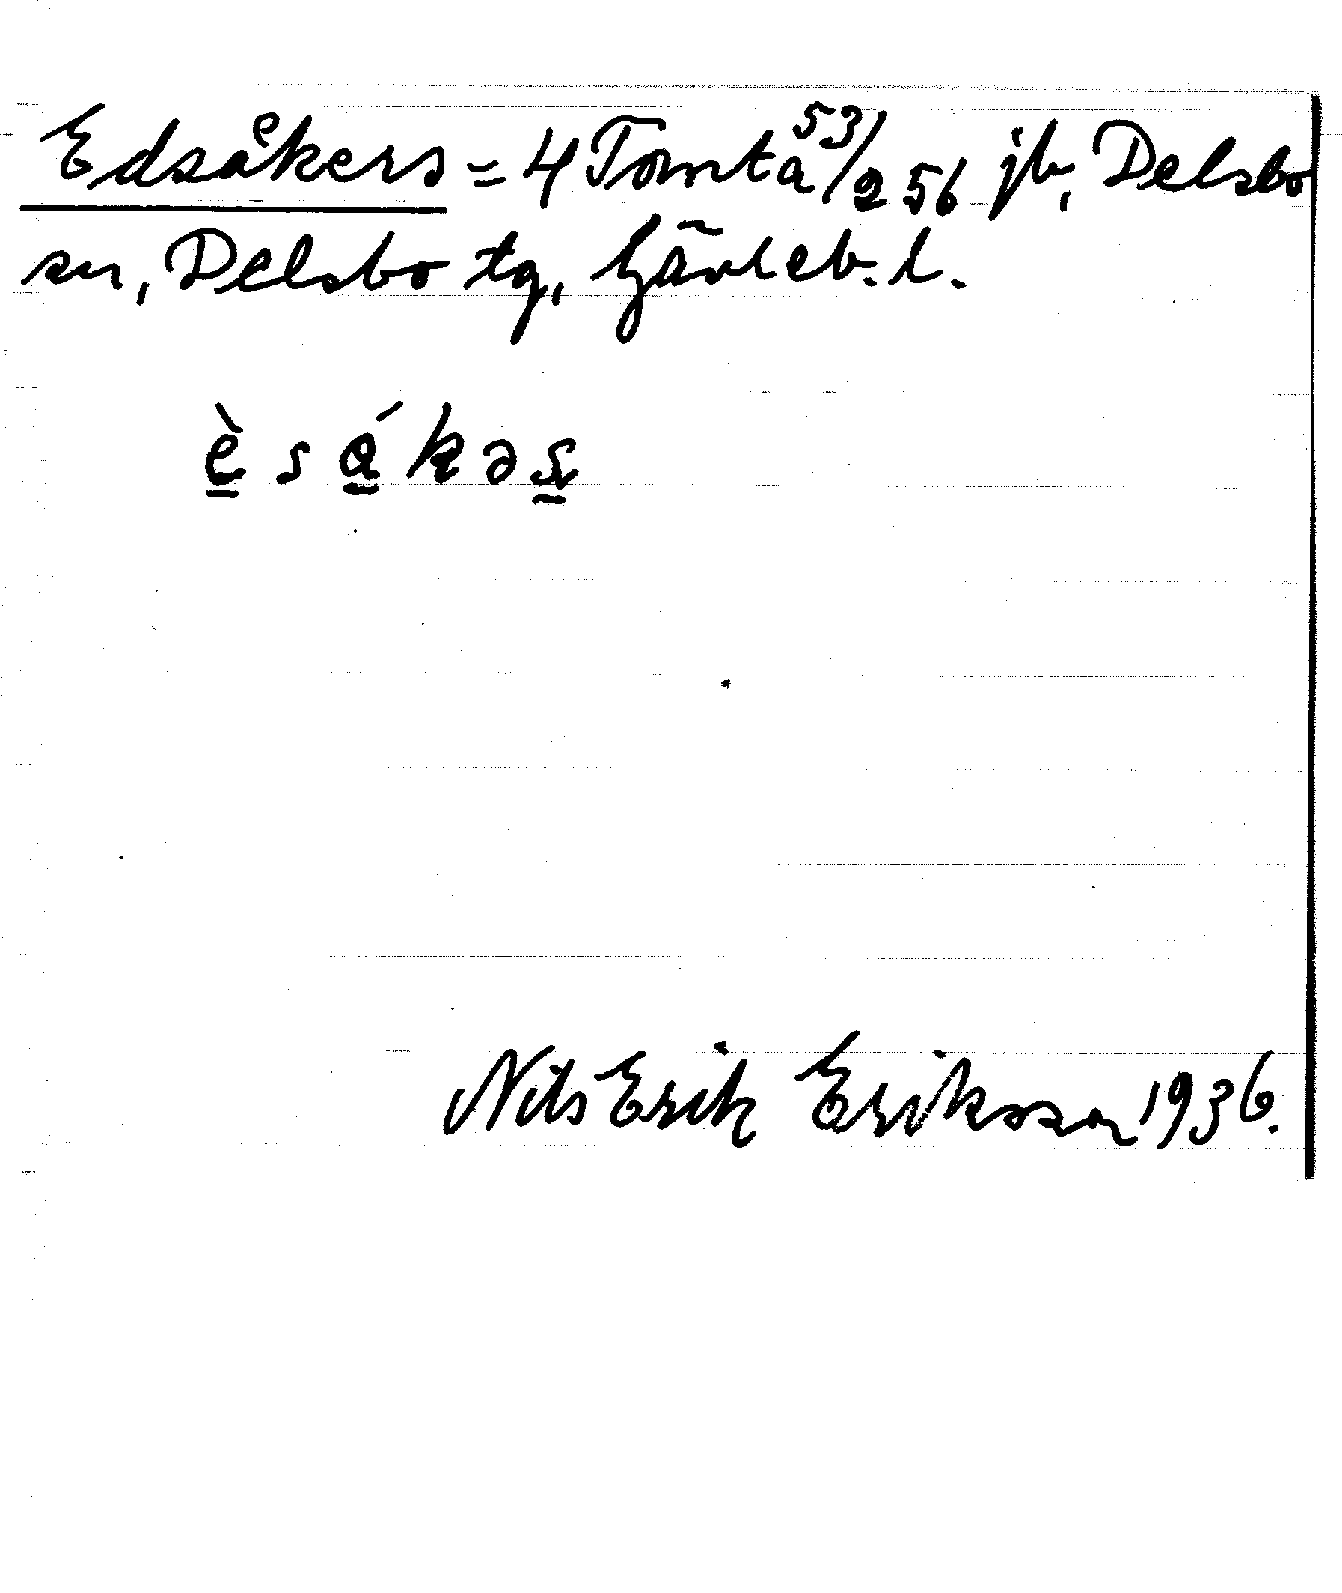 Edsåkers = 4 Tomta 53/256 jb, Delsbo
sn, Delsbo tg, Gävleb. l.
è s á k ə s
Nils Erik Eriksson 1936.